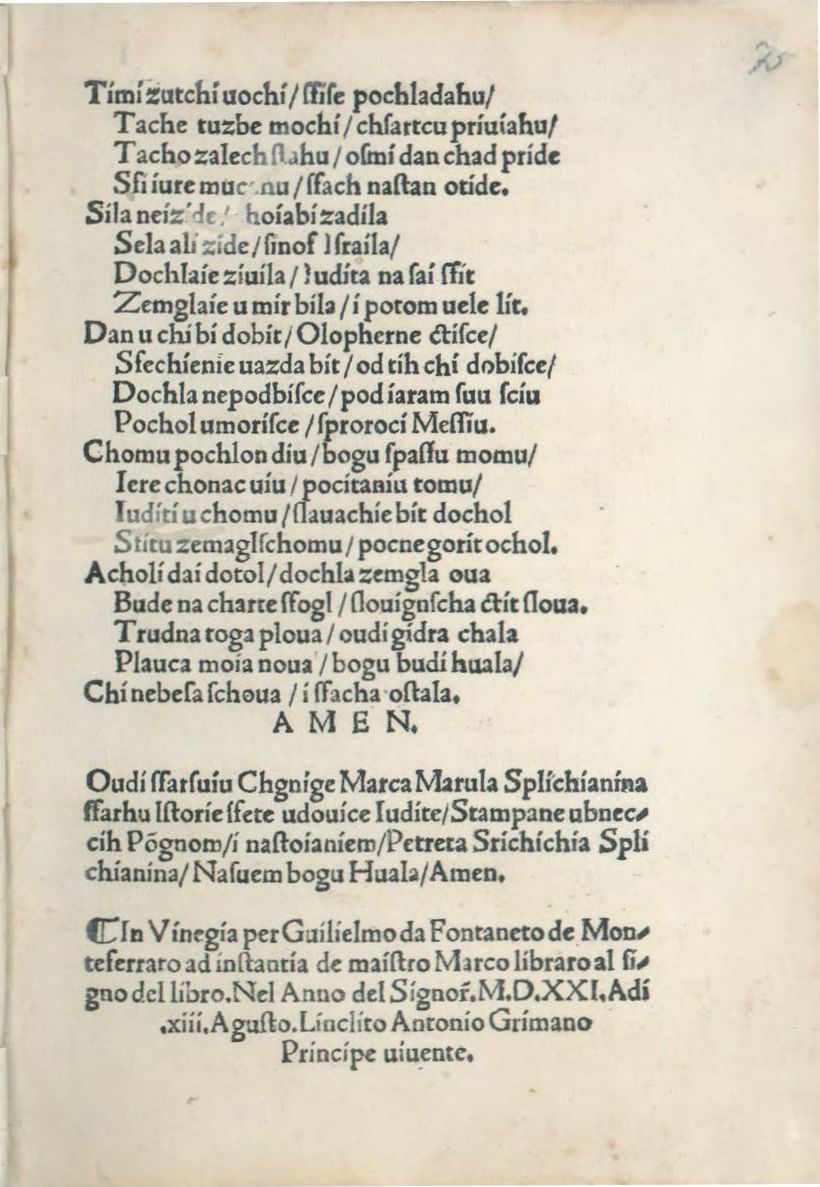 Timi zutchi uochi / ſſiſe pochladahu /
Tache tuzbe mochi / chſartcu priuiahu /
Tacho zalech ſtahu / oſmi dan chad pride
Sſi iure / ſſach naſtan otide.
Sila hoiabi zadila
Sela ali zide / ſinof Iſraila /
Dochlaie ziuila / Iudita na ſai ſſit
Zemglaie u mir bila / i potom uele lit.
Dan u chi bi dobit / Olopherne ctiſce /
Sfechienie uazda bit / od tih chi dobiſce /
Dochla nepodbiſce / pod iaram ſuu ſciu
Pochol umoriſce / ſproroci Meſſiu.
Chomu pochlon diu / bogu ſpaſſu momu /
Iere chonac uiu / pocitaniu tomu /
Iuditi u chomu / ſlauachie bit dochol
Stitu zemaglſchomu / pocne gorit ochol.
Acholi dai dotol / dochla zemgla oua
Bude na charte ſſogl / ſlouignſcha ctit ſloua.
Trudna toga ploua / oudi gidra chala
Plauca moia noua / bogu budi huala /
Chi nebeſa ſchoua / i ſſacha oſtala.
A M E N.
Oudi ſſarſuiu Chgnige Marca Marula Splichianina
ſſarhu Iſtorie ſſete udouice Iudite / Stampane ubnec⸗
cih Põgnom / i naſtoianiem / Petreta Srichichia Spli
chianina / Na ſuem bogu Huala / Amen.
⁋ In Vinegia per Guilielmo da Fontaneto de Mon⸗
teferraro ad inſtantia de maiſtro Marco libraro al ſi⸗
gno del libro. Nel Anno del Signor̃. M.D.XXI. Adi
.xiii. Aguſto. Linclito Antonio Grimano
Principe uiuente.